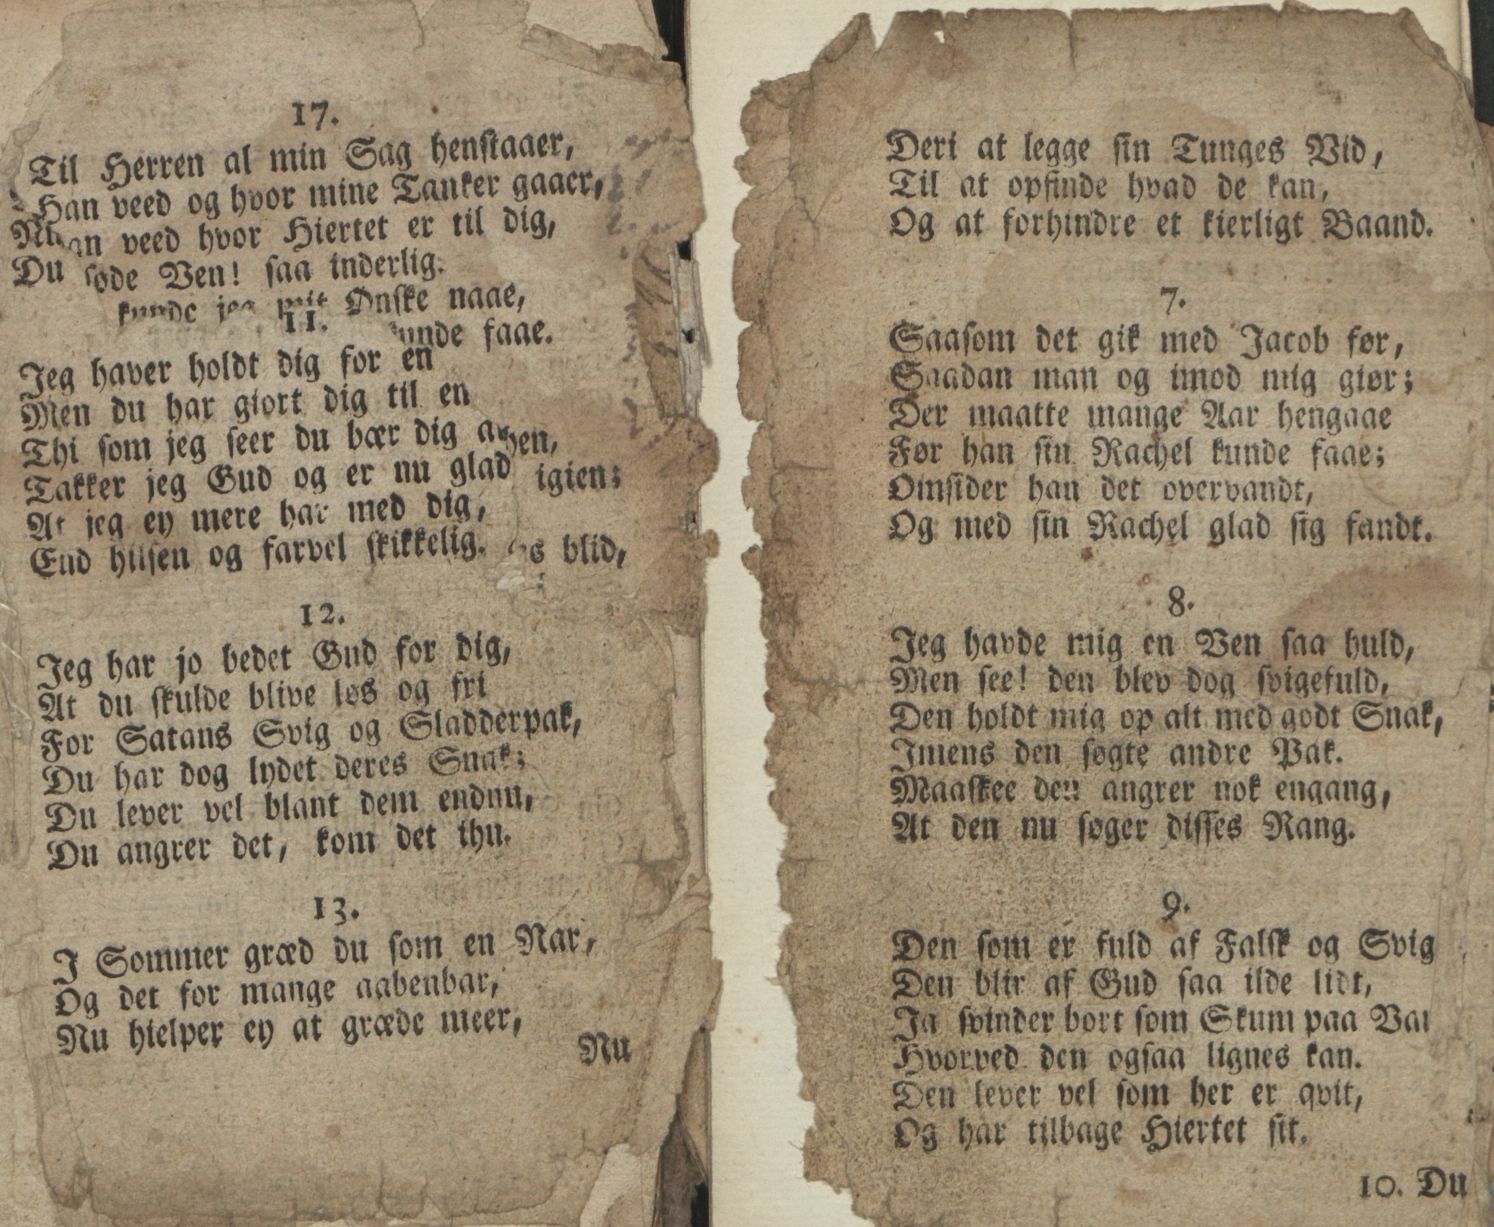 17.
Til Herren al min Sag henstaaer,
Han veed og hvor mine Tanker gaaer,
an veed hvor Hiertet er til dig,
Du søde Ven! saa inderlig.
kunde jeg mit Ønske naae,
kunde faae.
11.
Jeg haver holdt dig for en
Men du har giort dig til en
Thi som jeg seer du bær dig a
Takker jeg Gud og er nu glad igien;
At jeg ey mere har med dig,
End hilsen og farvel skikkelig. blid,
12.
Jeg har jo bedet Gud for dig,
At du skulde blive løs og fri
For Satans Svig og Sladderpak,
Du har dog lydet deres Snak;
Du lever vel blant dem endnu,
Du angrer det, kom det ihu.
13.
I Sommer græd du som en Nar,
Og det for mange aabenbar,
Nu hielper ey at græde meer,
Nu
Deri at legge sin Tunges Vid,
Til at opfinde hvad de kan,
Og at forhindre et kierligt Baand.
7.
Saasom det gik med Jacob før,
Saadan man og imod mig giør;
Der maatte mange Aar hengaae
Før han sin Rachel kunde faae;
Omsider han det overvandt,
Og med sin Rachel glad sig fandt.
8.
Jeg havde mig en Ven saa huld,
Men see! den blev dog svigefuld,
Den holdt mig op alt med godt Snak,
Imens den søgte andre Pak.
Maaskee den angrer nok engang,
At den nu søger disses Rang.
9.
Den som er fuld af Falsk og Svig
Den blir af Gud saa ilde lidt,
Ja svinder bort som Skum paa Va
Hvorved den ogsaa lignes kan.
Den lever vel som her er qvit,
Og har tilbage Hiertet sit.
10. Du